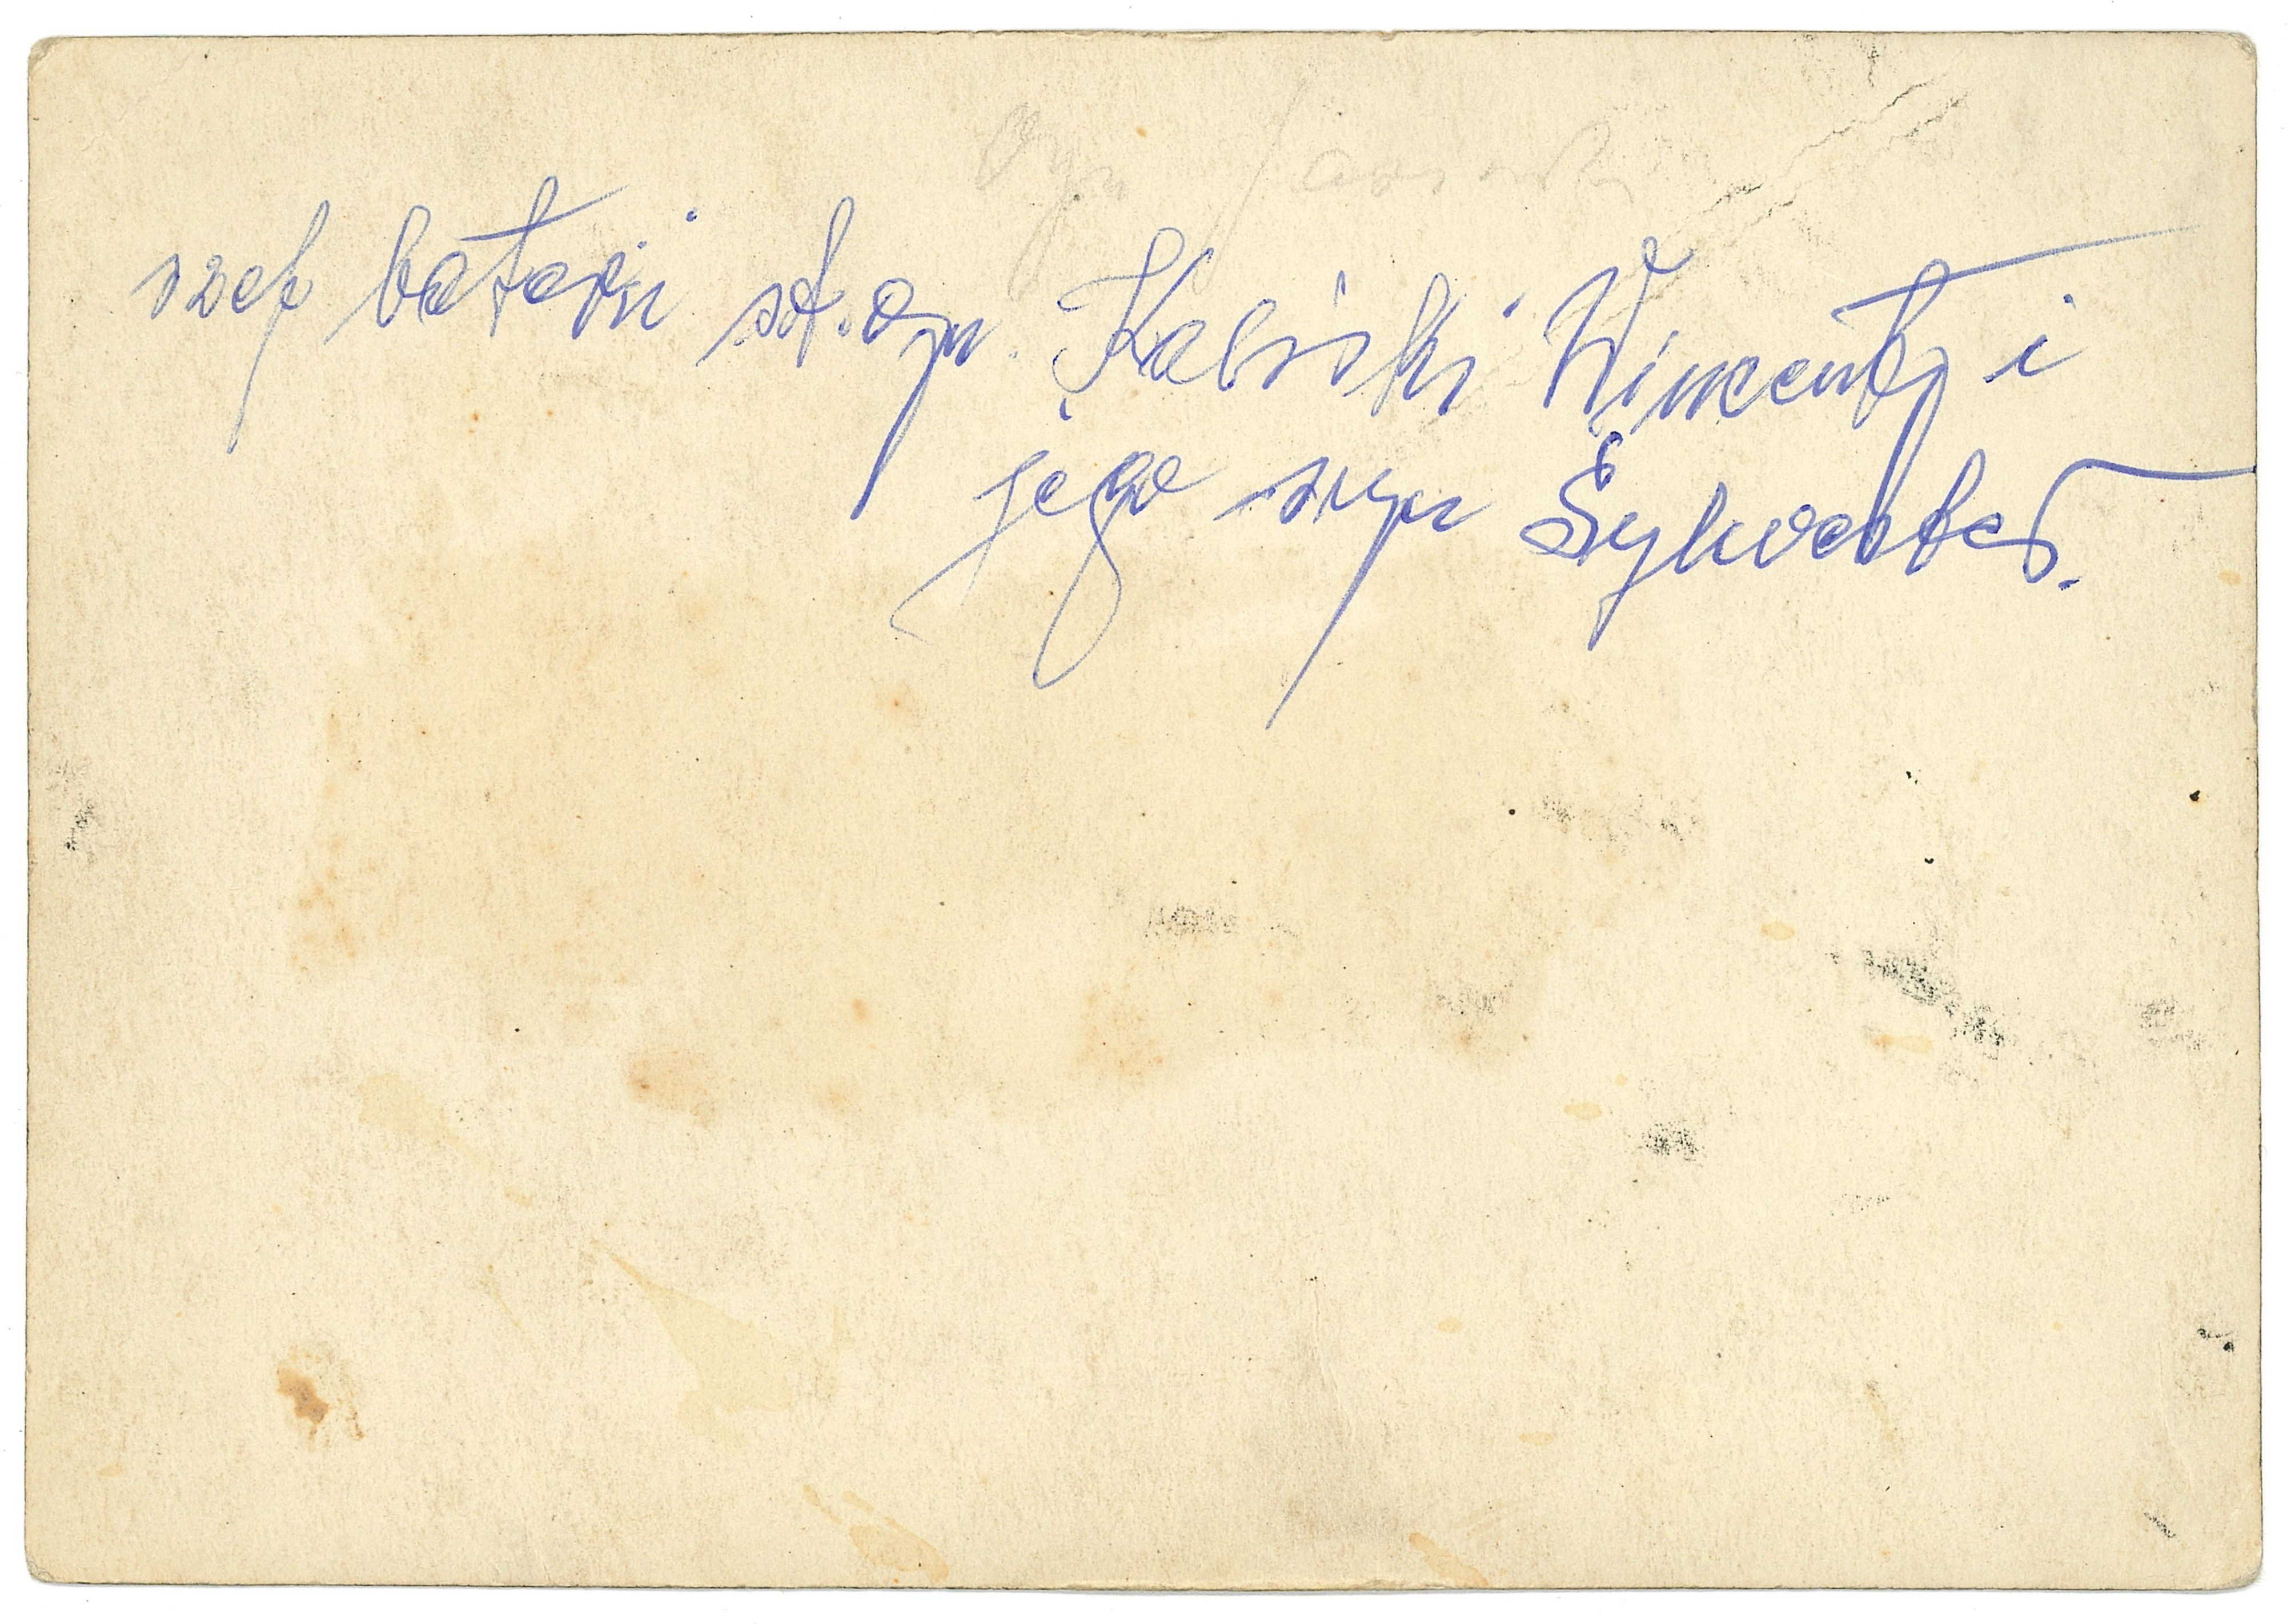 szef baterii st. ogn. Kabiński Wincenty i
jego syn Sylwester.